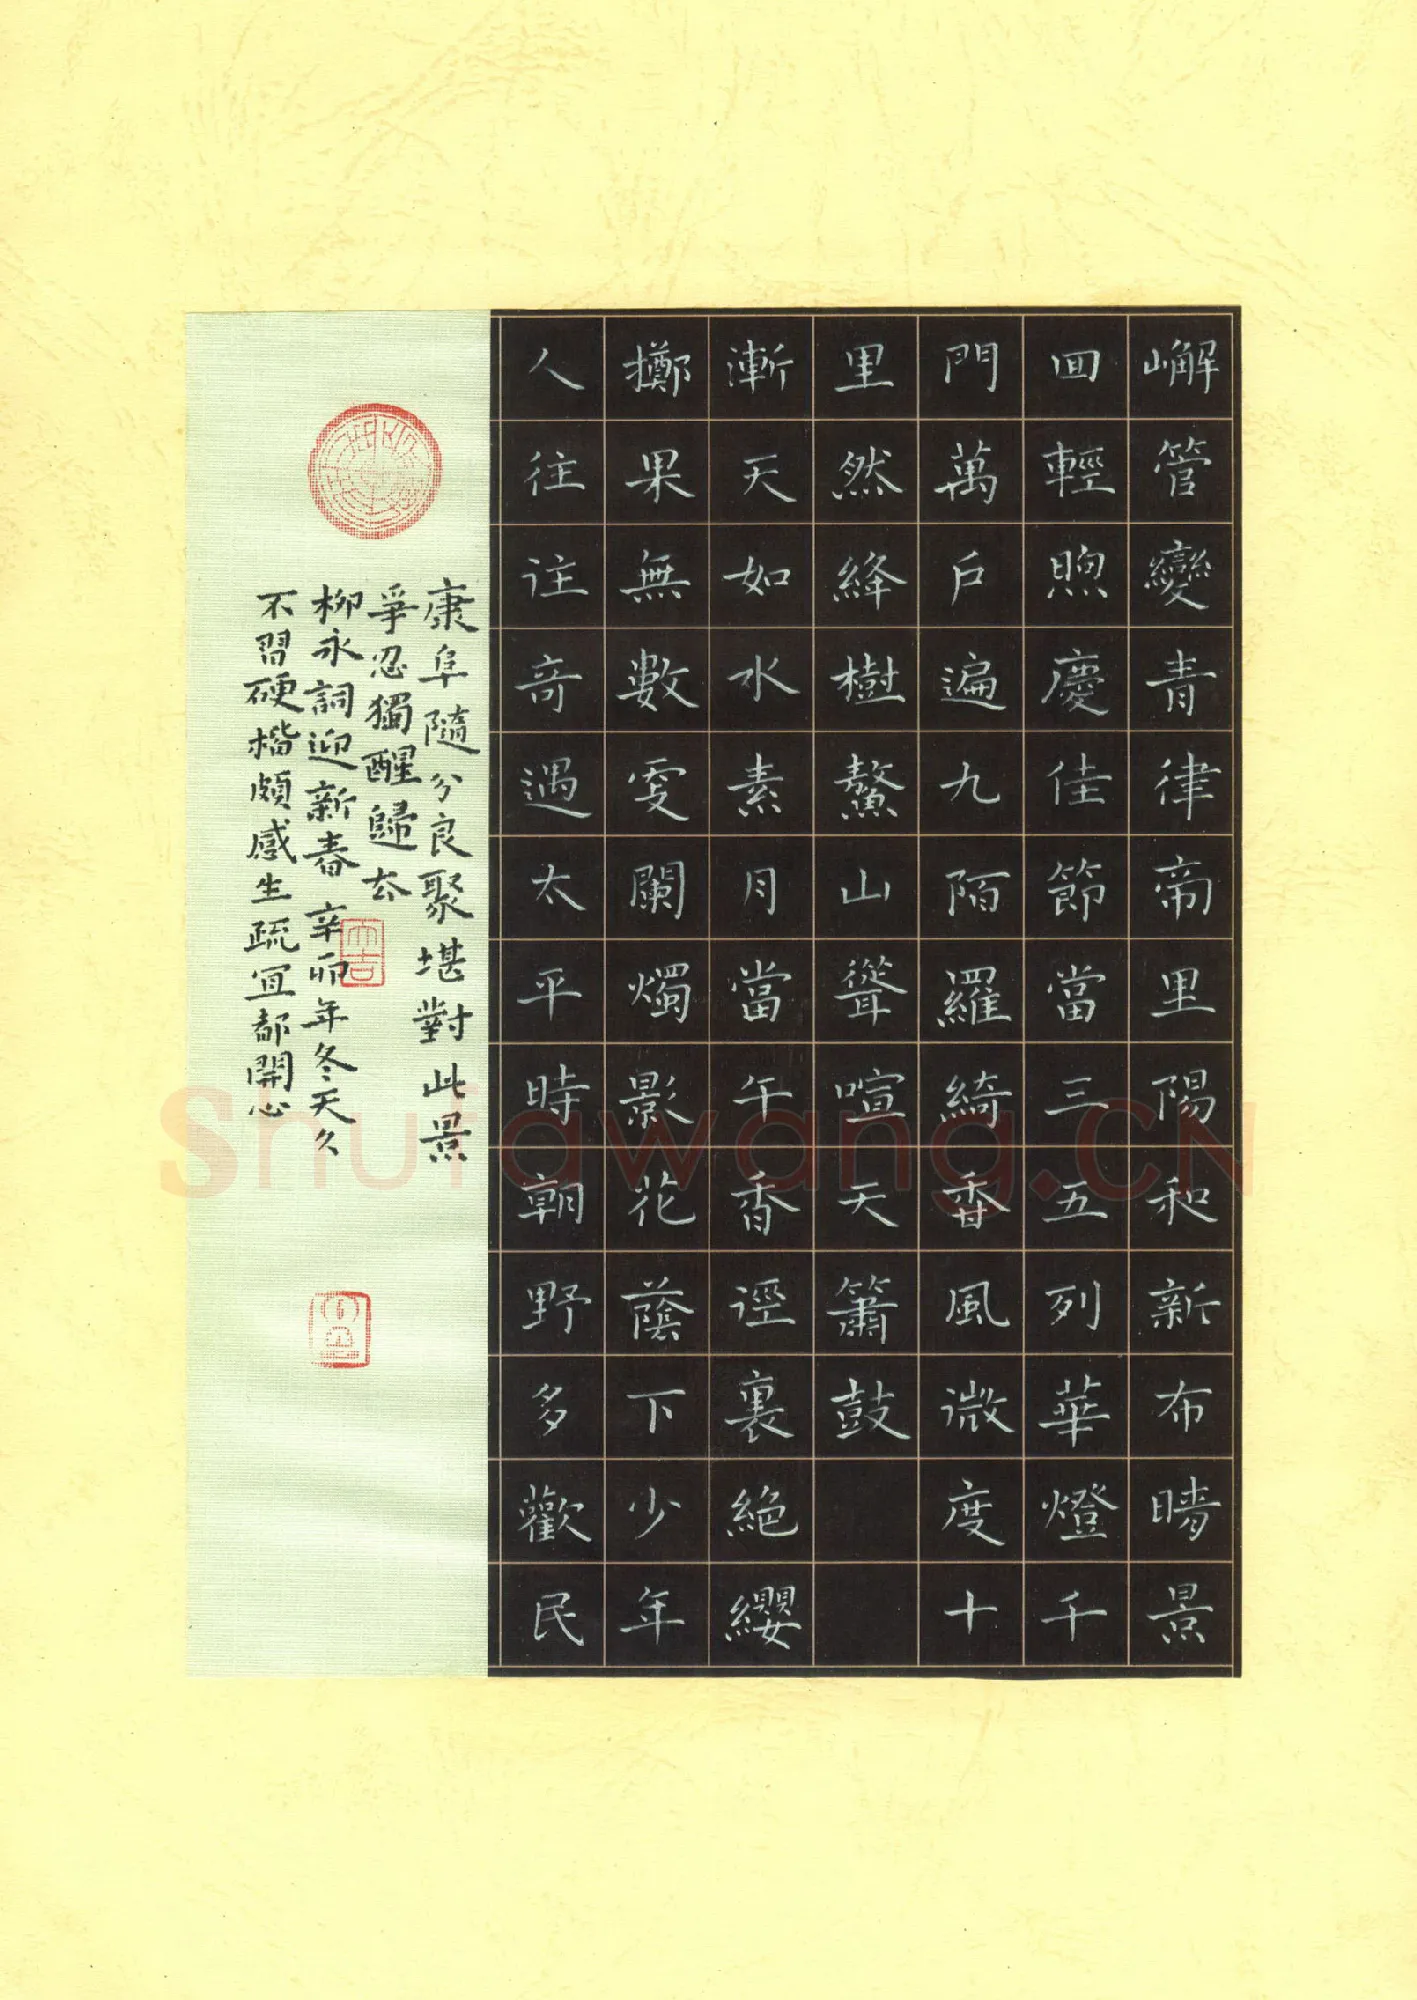 嶰管變青律帝里陽和新布晴景
回輕煦慶佳節當三五列華燈千
門萬戶遍九陌羅綺香風微度十
里然絳樹鰲山聳喧天簫鼓
漸天如水素月當午香逕裏絕纓
擲果無數更闌燭影花蔭下少年
人往往奇遇太平時朝野多歡民
康阜隨分良聚堪對此景
爭忍獨醒歸去
柳永詞迎新春 辛卯年冬天久
不習硬楷頗感生疏宜都開心
大吉
Shufawang.CN